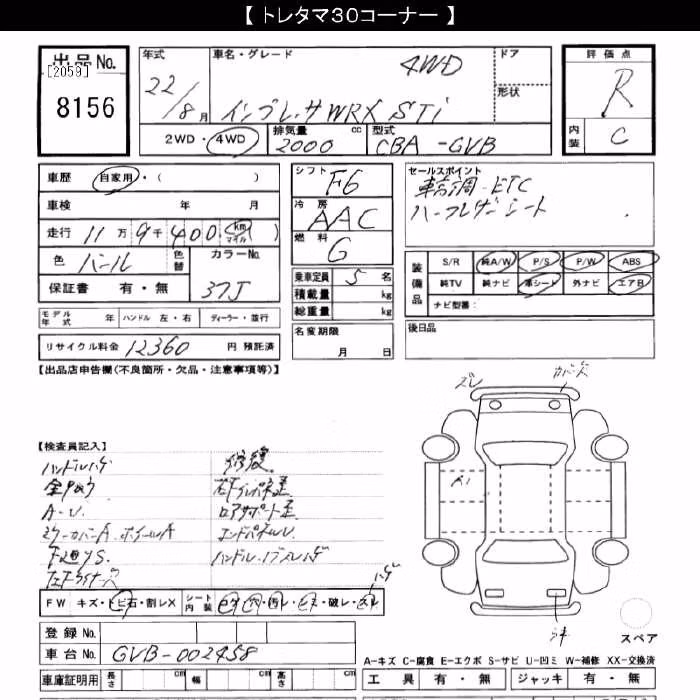 【 トレタマ30コーナー 】
出品No.
[2059]
8156
年式 22/8月
車名・グレード 4WD
インプレッサWRX STi
ドア
形状
評価点 R
内装 C
2WD・4WD 排気量 2000 cc 型式 CBA-GVB
車歴 自家用・( )
車検 年 月
走行 11万9千400 km マイル )
色 パール 色替 カラーNo. 37J
保証書 有・無
モデル年式 年 ハンドル 左・右 ディーラー・並行
リサイクル料金 12360 円 預託済
シフト F6
冷房 AAC
燃料 G
乗車定員 5 名
積載量 kg
総重量 kg
名変期限
月 日
セールスポイント
車高調 ETC
ハーフレザーシート
装備品 S/R 純A/W P/S P/W ABS
純TV 純ナビ 革シート 外ナビ エアB
ナビ型番:
後日品
【出品店申告欄(不良箇所・欠品・注意事項等)】
【検査員記入】
ハンドルハゲ
A-U
下廻りS
修復
ロアサポート歪
エンドパネルU
FW キズ・トビ石・割レX シート内装 コゲ・穴・汚レ・ヒビ・破レ・スレ ハゲ
登録No.
車台No. GVB-002458
車庫証明用 長さ cm 幅 cm 高さ cm
ズレ
スペア
A-キズ C-腐食 E-エクボ S-サビ U-凹ミ W-補修 XX-交換済
工具 有・無 ジャッキ 有・無